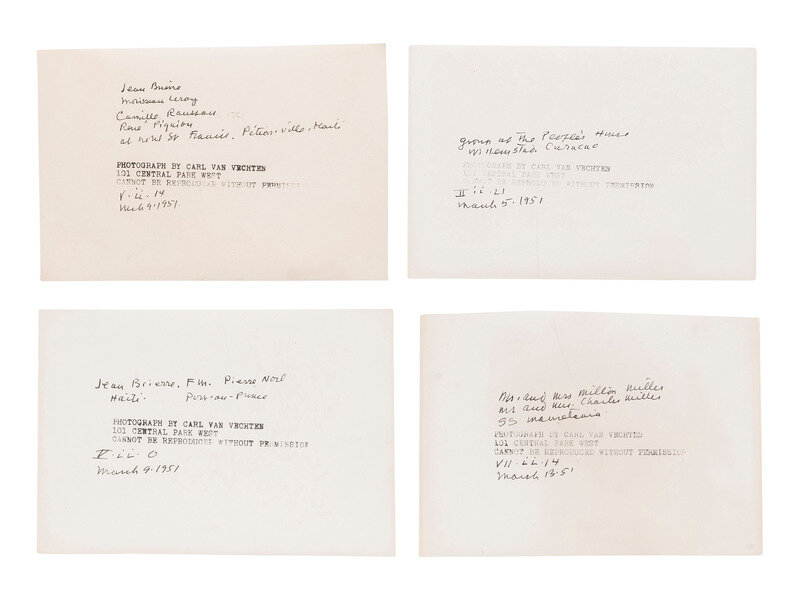 Jean Brierre
Morisseau Leroy
Camille Roussan
René Piquion
at Hotel St Francis, Pétion-Ville, Haiti
PHOTOGRAPH BY CARL VAN VECHTEN
101 CENTRAL PARK WEST
CANNOT BE REPRODUCED WITHOUT PERMISSION
V.ii.14
March 9.1951.
group at The People's House
Willemstab Curacao
PHOTOGRAPH BY CARL VAN VECHTEN
101 CENTRAL PARK WEST
CANNOT BE REPRODUCED WITHOUT PERMISSION
II.ii.21
March 5.1951
Jean Brierre, F.M. Pierre Noel
Haiti. Port-au-Prince
PHOTOGRAPH BY CARL VAN VECHTEN
101 CENTRAL PARK WEST
CANNOT BE REPRODUCED WITHOUT PERMISSION
V.ii.0
March 9.1951
Mr. and Mrs Milton Miller
Mr and Mrs. Charles Miller
SS Mauretania
PHOTOGRAPH BY CARL VAN VECHTEN
101 CENTRAL PARK WEST
CANNOT BE REPRODUCED WITHOUT PERMISSION
VII.ii.14
March 13.51